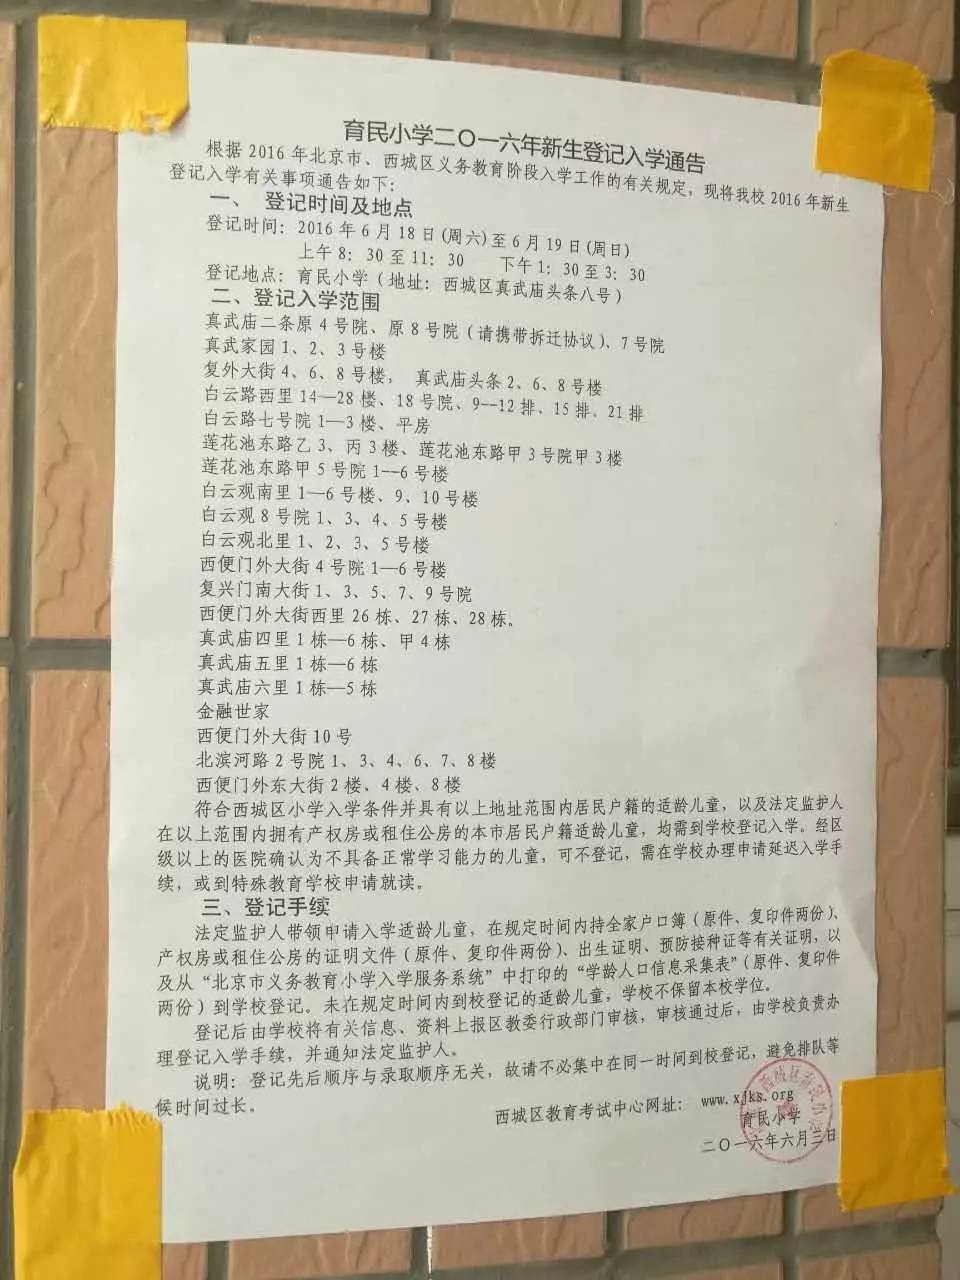 育民小学二〇一六年新生登记入学通告
根据 2016 年北京市、西城区义务教育阶段入学工作的有关规定，现将我校 2016 年新生
登记入学有关事项通告如下：
一、 登记时间及地点
登记时间：2016 年 6 月 18 日(周六)至 6 月 19 日(周日)
上午 8：30 至 11：30 下午 1：30 至 3：30
登记地点：育民小学（地址：西城区真武庙头条八号）
二、登记入学范围
真武庙二条原 4 号院、原 8 号院（请携带拆迁协议）、7 号院
真武家园 1、2、3 号楼
复外大街 4、6、8 号楼， 真武庙头条 2、6、8 号楼
白云路西里 14—28 楼、18 号院、9—12 排、15 排、21 排
白云路七号院 1—3 楼、平房
莲花池东路乙 3、丙 3 楼、莲花池东路甲 3 号院甲 3 楼
莲花池东路甲 5 号院 1—6 号楼
白云观南里 1—6 号楼、9、10 号楼
白云观 8 号院 1、3、4、5 号楼
白云观北里 1、2、3、5 号楼
西便门外大街 4 号院 1—6 号楼
复兴门南大街 1、3、5、7、9 号院
西便门外大街西里 26 栋、27 栋、28 栋。
真武庙四里 1 栋—6 栋、甲 4 栋
真武庙五里 1 栋—6 栋
真武庙六里 1 栋—5 栋
金融世家
西便门外大街 10 号
北滨河路 2 号院 1、3、4、6、7、8 楼
西便门外东大街 2 楼、4 楼、8 楼
符合西城区小学入学条件并具有以上地址范围内居民户籍的适龄儿童，以及法定监护人
在以上范围内拥有产权房或租住公房的本市居民户籍适龄儿童，均需到学校登记入学。经区
级以上的医院确认为不具备正常学习能力的儿童，可不登记，需在学校办理申请延迟入学手
续，或到特殊教育学校申请就读。
三、登记手续
法定监护人带领申请入学适龄儿童，在规定时间内持全家户口簿（原件、复印件两份）、
产权房或租住公房的证明文件（原件、复印件两份）、出生证明、预防接种证等有关证明，以
及从“北京市义务教育小学入学服务系统”中打印的“学龄人口信息采集表”（原件、复印件
两份）到学校登记。未在规定时间内到校登记的适龄儿童，学校不保留本校学位。
登记后由学校将有关信息、资料上报区教委行政部门审核，审核通过后，由学校负责办
理登记入学手续，并通知法定监护人。
说明：登记先后顺序与录取顺序无关，故请不必集中在同一时间到校登记，避免排队等
候时间过长。
西城区教育考试中心网址： www.xjks.org
育民小学
二〇一六年六月三日